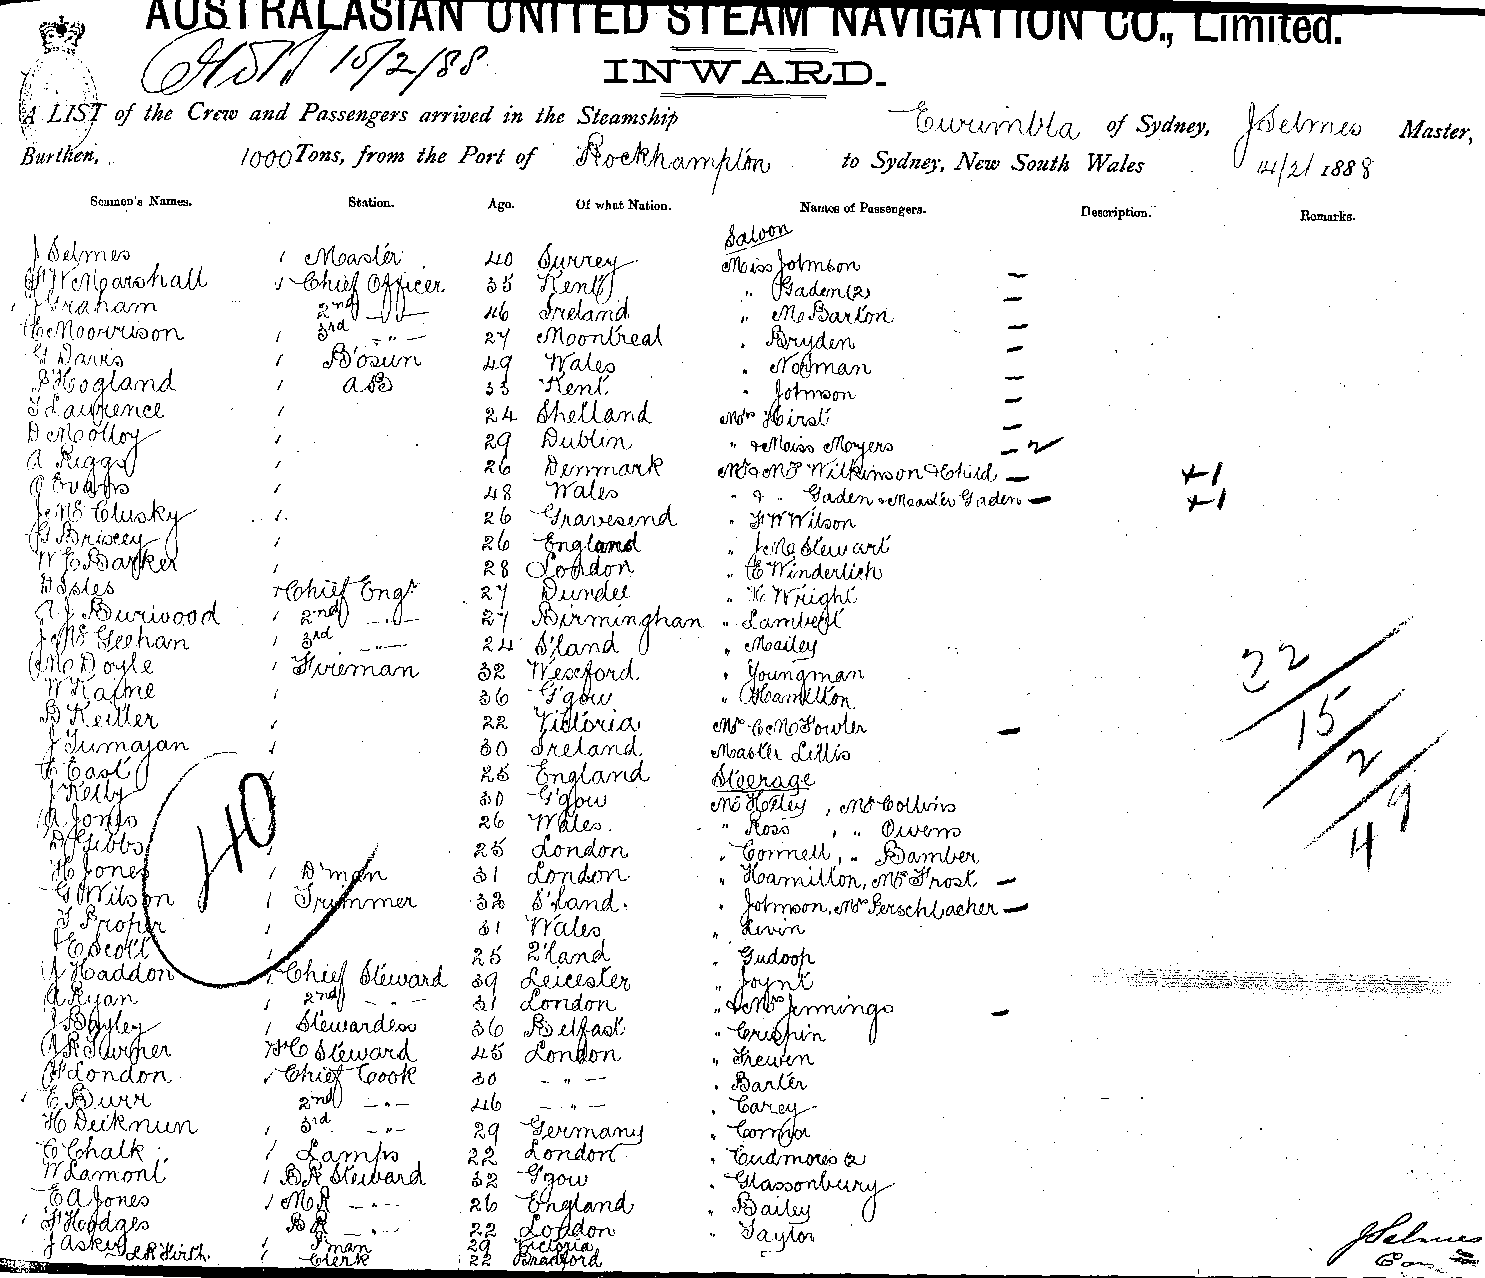 AUSTRALASIAN UNITED STEAM NAVIGATION CO., Limited.
15/2/88
INWARD.
A LIST of the Crew and Passengers arrived in the Steamship Eurimbla of Sydney, J Selmes Master,
Burthen, 1000 Tons, from the Port of Rockhampton to Sydney, New South Wales 14/2/1888
Seamen's Names. Station. Age. Of what Nation. Names of Passengers. Description. Remarks.
Saloon
J Selmes Master 40 Surrey Miss Johnson
W Marshall Chief Officer 35 Kent " Gaden (2) —
J Graham 2nd —"— 46 Ireland " McBarton —
Morrison 3rd —"— 27 Montreal " Bryden —
G Davis B'osun 49 Wales " Norman —
Hogland AB 33 Kent " Johnson —
T Laurence 24 Shetland Mrs Hirst —
D Molloy 29 Dublin " & Miss Moyers — 2
A Riggs 26 Denmark Mr & Mrs Wilkinson & Child — +1
Evans 48 Wales " & " Gaden & Master Gaden — +1
J McClusky 26 Gravesend " F W Wilson
G Briscey 26 England " J M Stewart
W E Barker 28 London " E Winderlich
Isles Chief Engr 27 Dundee " H Wright
J Burwood 2nd —"— 27 Birminghan " Lambert
J McGeehan 3rd —"— 24 S'land " Mailey
McDoyle Fireman 32 Wexford " Youngman
W Kaine 36 G'gow " Hamilton
B Keiller 22 Victoria Mrs C M Fowler —
J Tumajan 30 Ireland Master Lillis
H East 25 England Steerage
J Kelly 30 G'gow Mr Hotley, Mr Collins
A Jones 26 Wales " Ross, " Owens
D Gibbs 25 London " Connell, " Bamber
H Jones D'man 31 London " Hamilton, Mrs Frost —
G Wilson Trimmer 32 S'land. " Johnson, Mrs Perschbacher —
T Proper 31 Wales " Levin
J C Scott 25 Z'land " Gudoop
J Haddon Chief Steward 39 Leicester " Joynt
A Ryan 2nd —"— 31 London " & Mrs Jennings —
J Bayley Stewardess 36 Belfast " Crispin
R Turner Steward 45 London " Frewin
London Chief Cook 30 —"— " Barter
E Burr 2nd —"— 46 —"— " Carey
H Dicknun 3rd —"— 29 Germany " Connor
C Chalk Lamps 22 London " Cudmores 2
W Lamont BR Steward 32 G'gow " Glassonbury
E A Jones MR —"— 26 England " Bailey
F Hodges BR —"— 22 London " Taylor
J Askey P'man 29 Victoria
R Firth Clerk 22 Bradford
40
22
15
2
49
J Selmes